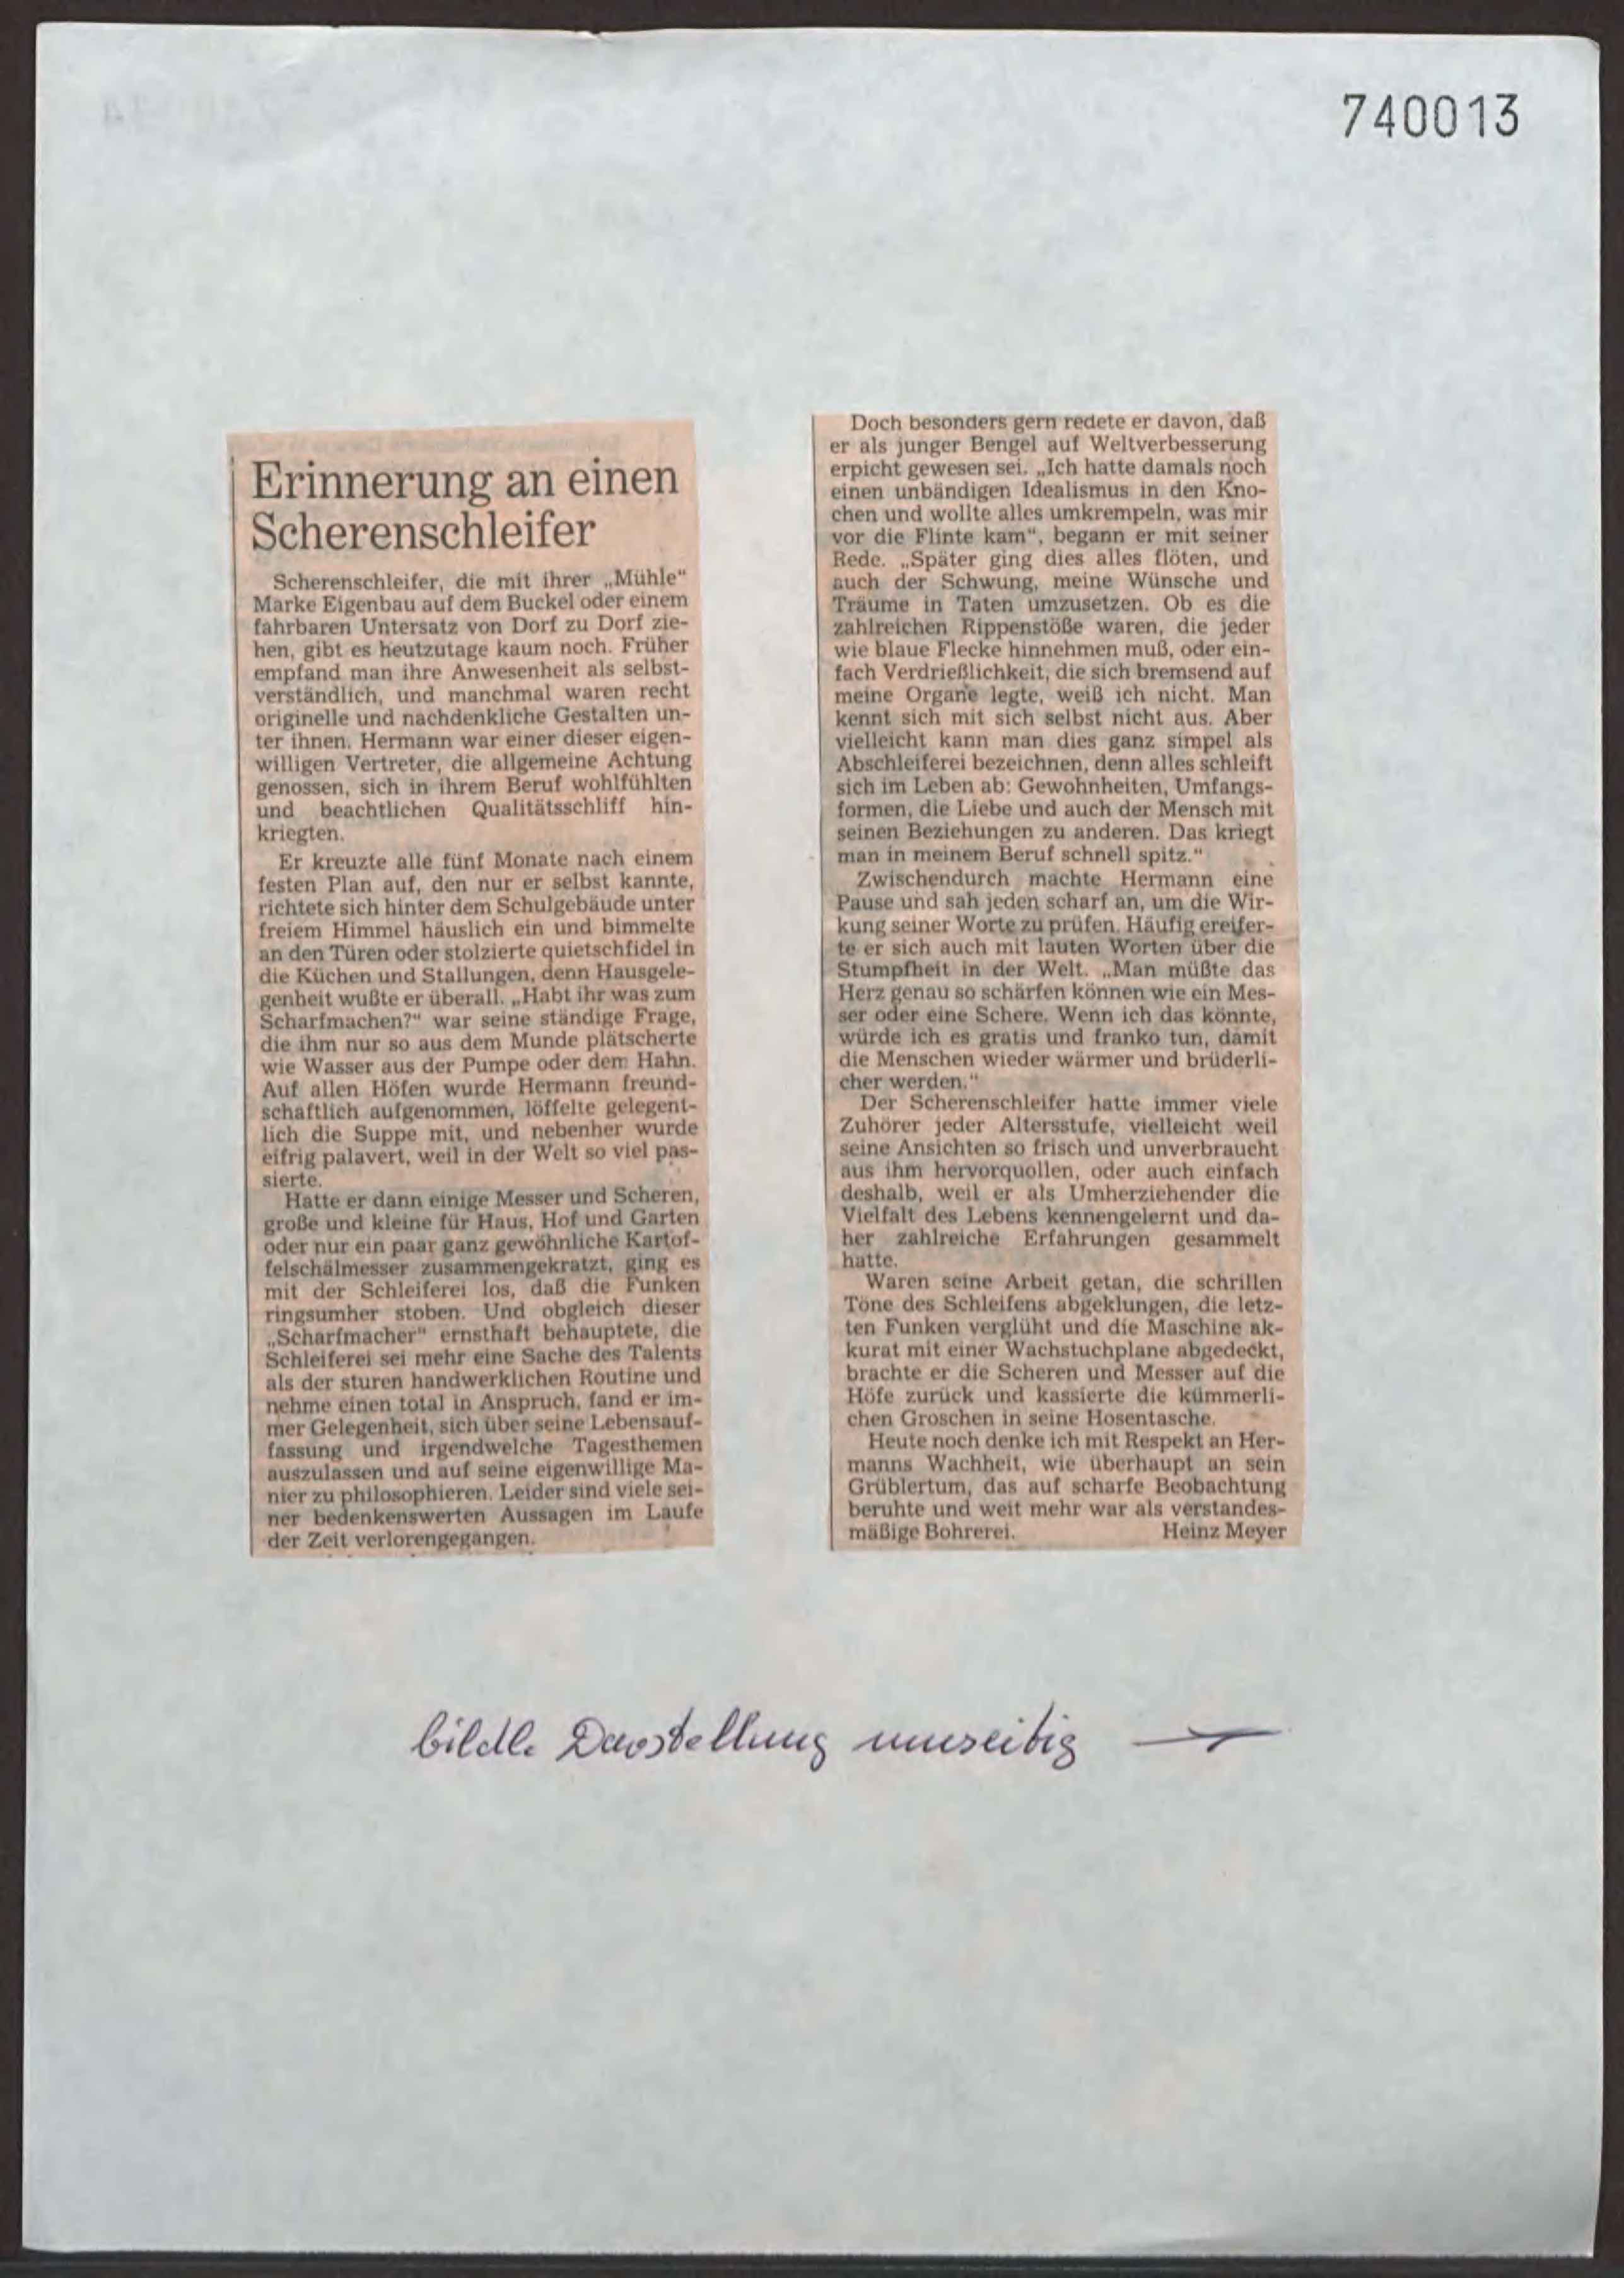 740013
Erinnerung an einen
Scherenschleifer
Scherenschleifer, die mit ihrer „Mühle“
Marke Eigenbau auf dem Buckel oder einem
fahrbaren Untersatz von Dorf zu Dorf zie-
hen, gibt es heutzutage kaum noch. Früher
empfand man ihre Anwesenheit als selbst-
verständlich, und manchmal waren recht
originelle und nachdenkliche Gestalten un-
ter ihnen. Hermann war einer dieser eigen-
willigen Vertreter, die allgemeine Achtung
genossen, sich in ihrem Beruf wohlfühlten
und beachtlichen Qualitätsschliff hin-
kriegten.
Er kreuzte alle fünf Monate nach einem
festen Plan auf, den nur er selbst kannte,
richtete sich hinter dem Schulgebäude unter
freiem Himmel häuslich ein und bimmelte
an den Türen oder stolzierte quietschfidel in
die Küchen und Stallungen, denn Hausgele-
genheit wußte er überall. „Habt ihr was zum
Scharfmachen?“ war seine ständige Frage,
die ihm nur so aus dem Munde plätscherte
wie Wasser aus der Pumpe oder dem Hahn.
Auf allen Höfen wurde Hermann freund-
schaftlich aufgenommen, löffelte gelegent-
lich die Suppe mit, und nebenher wurde
eifrig palavert, weil in der Welt so viel pas-
sierte.
Hatte er dann einige Messer und Scheren,
große und kleine für Haus, Hof und Garten
oder nur ein paar ganz gewöhnliche Kartof-
felschälmesser zusammengekratzt, ging es
mit der Schleiferei los, daß die Funken
ringsumher stoben. Und obgleich dieser
„Scharfmacher“ ernsthaft behauptete, die
Schleiferei sei mehr eine Sache des Talents
als der sturen handwerklichen Routine und
nehme einen total in Anspruch, fand er im-
mer Gelegenheit, sich über seine Lebensauf-
fassung und irgendwelche Tagesthemen
auszulassen und auf seine eigenwillige Ma-
nier zu philosophieren. Leider sind viele sei-
ner bedenkenswerten Aussagen im Laufe
der Zeit verlorengegangen.
Doch besonders gern redete er davon, daß
er als junger Bengel auf Weltverbesserung
erpicht gewesen sei. „Ich hatte damals noch
einen unbändigen Idealismus in den Kno-
chen und wollte alles umkrempeln, was mir
vor die Flinte kam“, begann er mit seiner
Rede. „Später ging dies alles flöten, und
auch der Schwung, meine Wünsche und
Träume in Taten umzusetzen. Ob es die
zahlreichen Rippenstöße waren, die jeder
wie blaue Flecke hinnehmen muß, oder ein-
fach Verdrießlichkeit, die sich bremsend auf
meine Organe legte, weiß ich nicht. Man
kennt sich mit sich selbst nicht aus. Aber
vielleicht kann man dies ganz simpel als
Abschleiferei bezeichnen, denn alles schleift
sich im Leben ab: Gewohnheiten, Umfangs-
formen, die Liebe und auch der Mensch mit
seinen Beziehungen zu anderen. Das kriegt
man in meinem Beruf schnell spitz.“
Zwischendurch machte Hermann eine
Pause und sah jeden scharf an, um die Wir-
kung seiner Worte zu prüfen. Häufig ereifer-
te er sich auch mit lauten Worten über die
Stumpfheit in der Welt. „Man müßte das
Herz genau so schärfen können wie ein Mes-
ser oder eine Schere. Wenn ich das könnte,
würde ich es gratis und franko tun, damit
die Menschen wieder wärmer und brüderli-
cher werden.“
Der Scherenschleifer hatte immer viele
Zuhörer jeder Altersstufe, vielleicht weil
seine Ansichten so frisch und unverbraucht
aus ihm hervorquollen, oder auch einfach
deshalb, weil er als Umherziehender die
Vielfalt des Lebens kennengelernt und da-
her zahlreiche Erfahrungen gesammelt
hatte.
Waren seine Arbeit getan, die schrillen
Töne des Schleifens abgeklungen, die letz-
ten Funken verglüht und die Maschine ak-
kurat mit einer Wachstuchplane abgedeckt,
brachte er die Scheren und Messer auf die
Höfe zurück und kassierte die kümmerli-
chen Groschen in seine Hosentasche.
Heute noch denke ich mit Respekt an Her-
manns Wachheit, wie überhaupt an sein
Grüblertum, das auf scharfe Beobachtung
beruhte und weit mehr war als verstandes-
mäßige Bohrerei. Heinz Meyer
bildl. Darstellung umseitig →